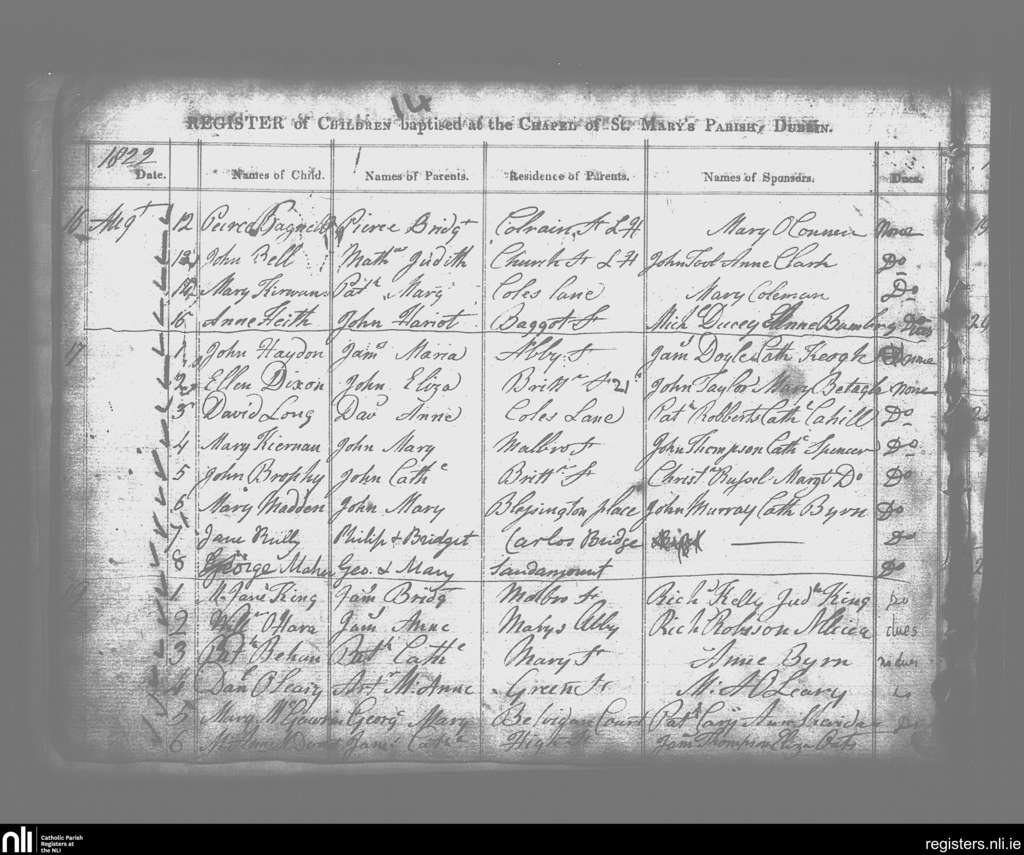 14
REGISTER of CHILDREN baptised at the CHAPEL of St. MARY'S PARISH, DUBLIN.
1822
Date. Names of Child. Names of Parents. Residence of Parents. Names of Sponsors. Dues.
16 Augt 12 Peirce Bagnell Pierce Bridgt Colrain St L H Mary OConnen None
13 John Bell Mathw Judith Church St L H John Tool Anne Clark Do
14 Mary Kirwan Patk Mary Coles lane Mary Coleman Do
15 Anne Keith John Hariot Baggot St Michl Ducey Anne Bambry
17 1 John Haydon Jams Maria Abby St Jams Doyle Cath Keogh none
2 Ellen Dixon John Eliza Brittn St 21 John Taylor Mary Betagh none
3 David Long Davd Anne Coles Lane Patk Robberts Cathe Cahill Do
4 Mary Kiernan John Mary Malbro St John Thompson Cathe Spencer Do
5 John Brophy John Cathe Brittn St Christr Russel Margt Do Do
6 Mary Madden John Mary Blessington place John Murray Cath Byrn Do
7 Jane Rielly Philip & Bridget Carlos Bridge Do
8 George Maher Geo. & Mary Sandamount Do
1 My Jane King Jams Bridgt Malbro St Richd Kelly Judth King Do
2 Willm OHara Jams Anne Marys Abby Richd Robson Alicia dues
3 Patk Behan Patk Cathe Mary St Anne Byrn no dues
4 Danl OLeary Artr M. Anne Green St M. A OLeary
5 Mary McGawran Georg Mary Belvigan Court Patk Cary Ann Sheridan
6 Jams Cathe High St Jams Thompson Eliza Oats
nli
Catholic Parish
Registers at
the NLI
registers.nli.ie